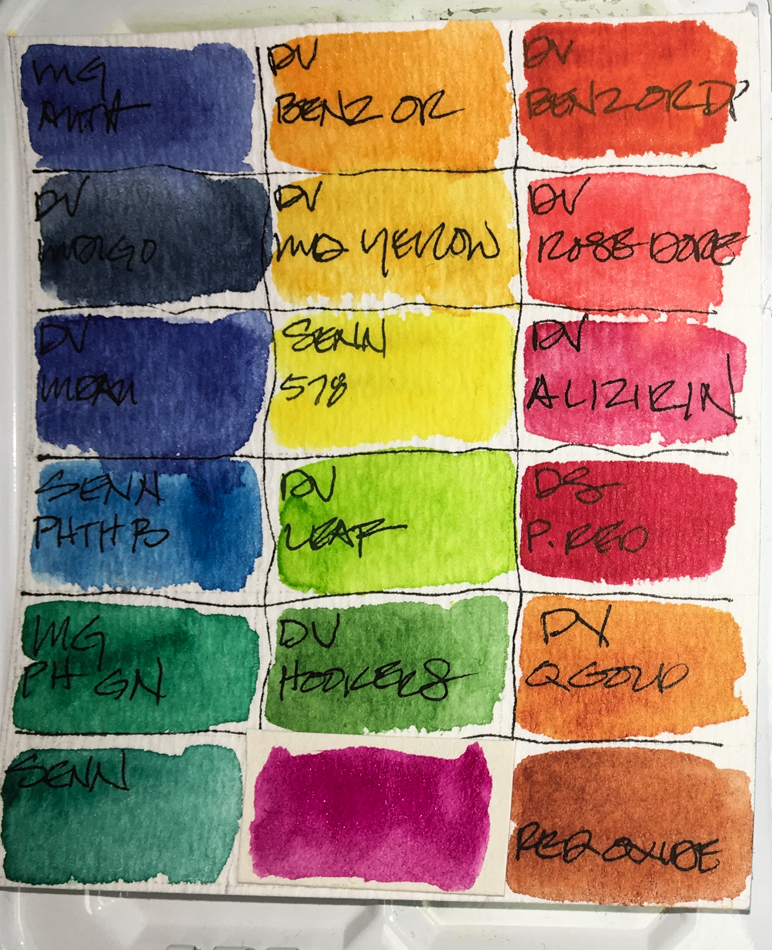 MG
ANTH
DV
BENZ OR
DV
BENZ OR DP
DV
INDIGO
DV
IND YELLOW
DV
ROSE DORE
DV
SENN
578
DV
ALIZIRIN
SENN
PHTH B
DV
LEAF
DS
P. RED
MG
PH GN
DV
HOOKERS
DV
Q GOLD
SENN
RED OXIDE